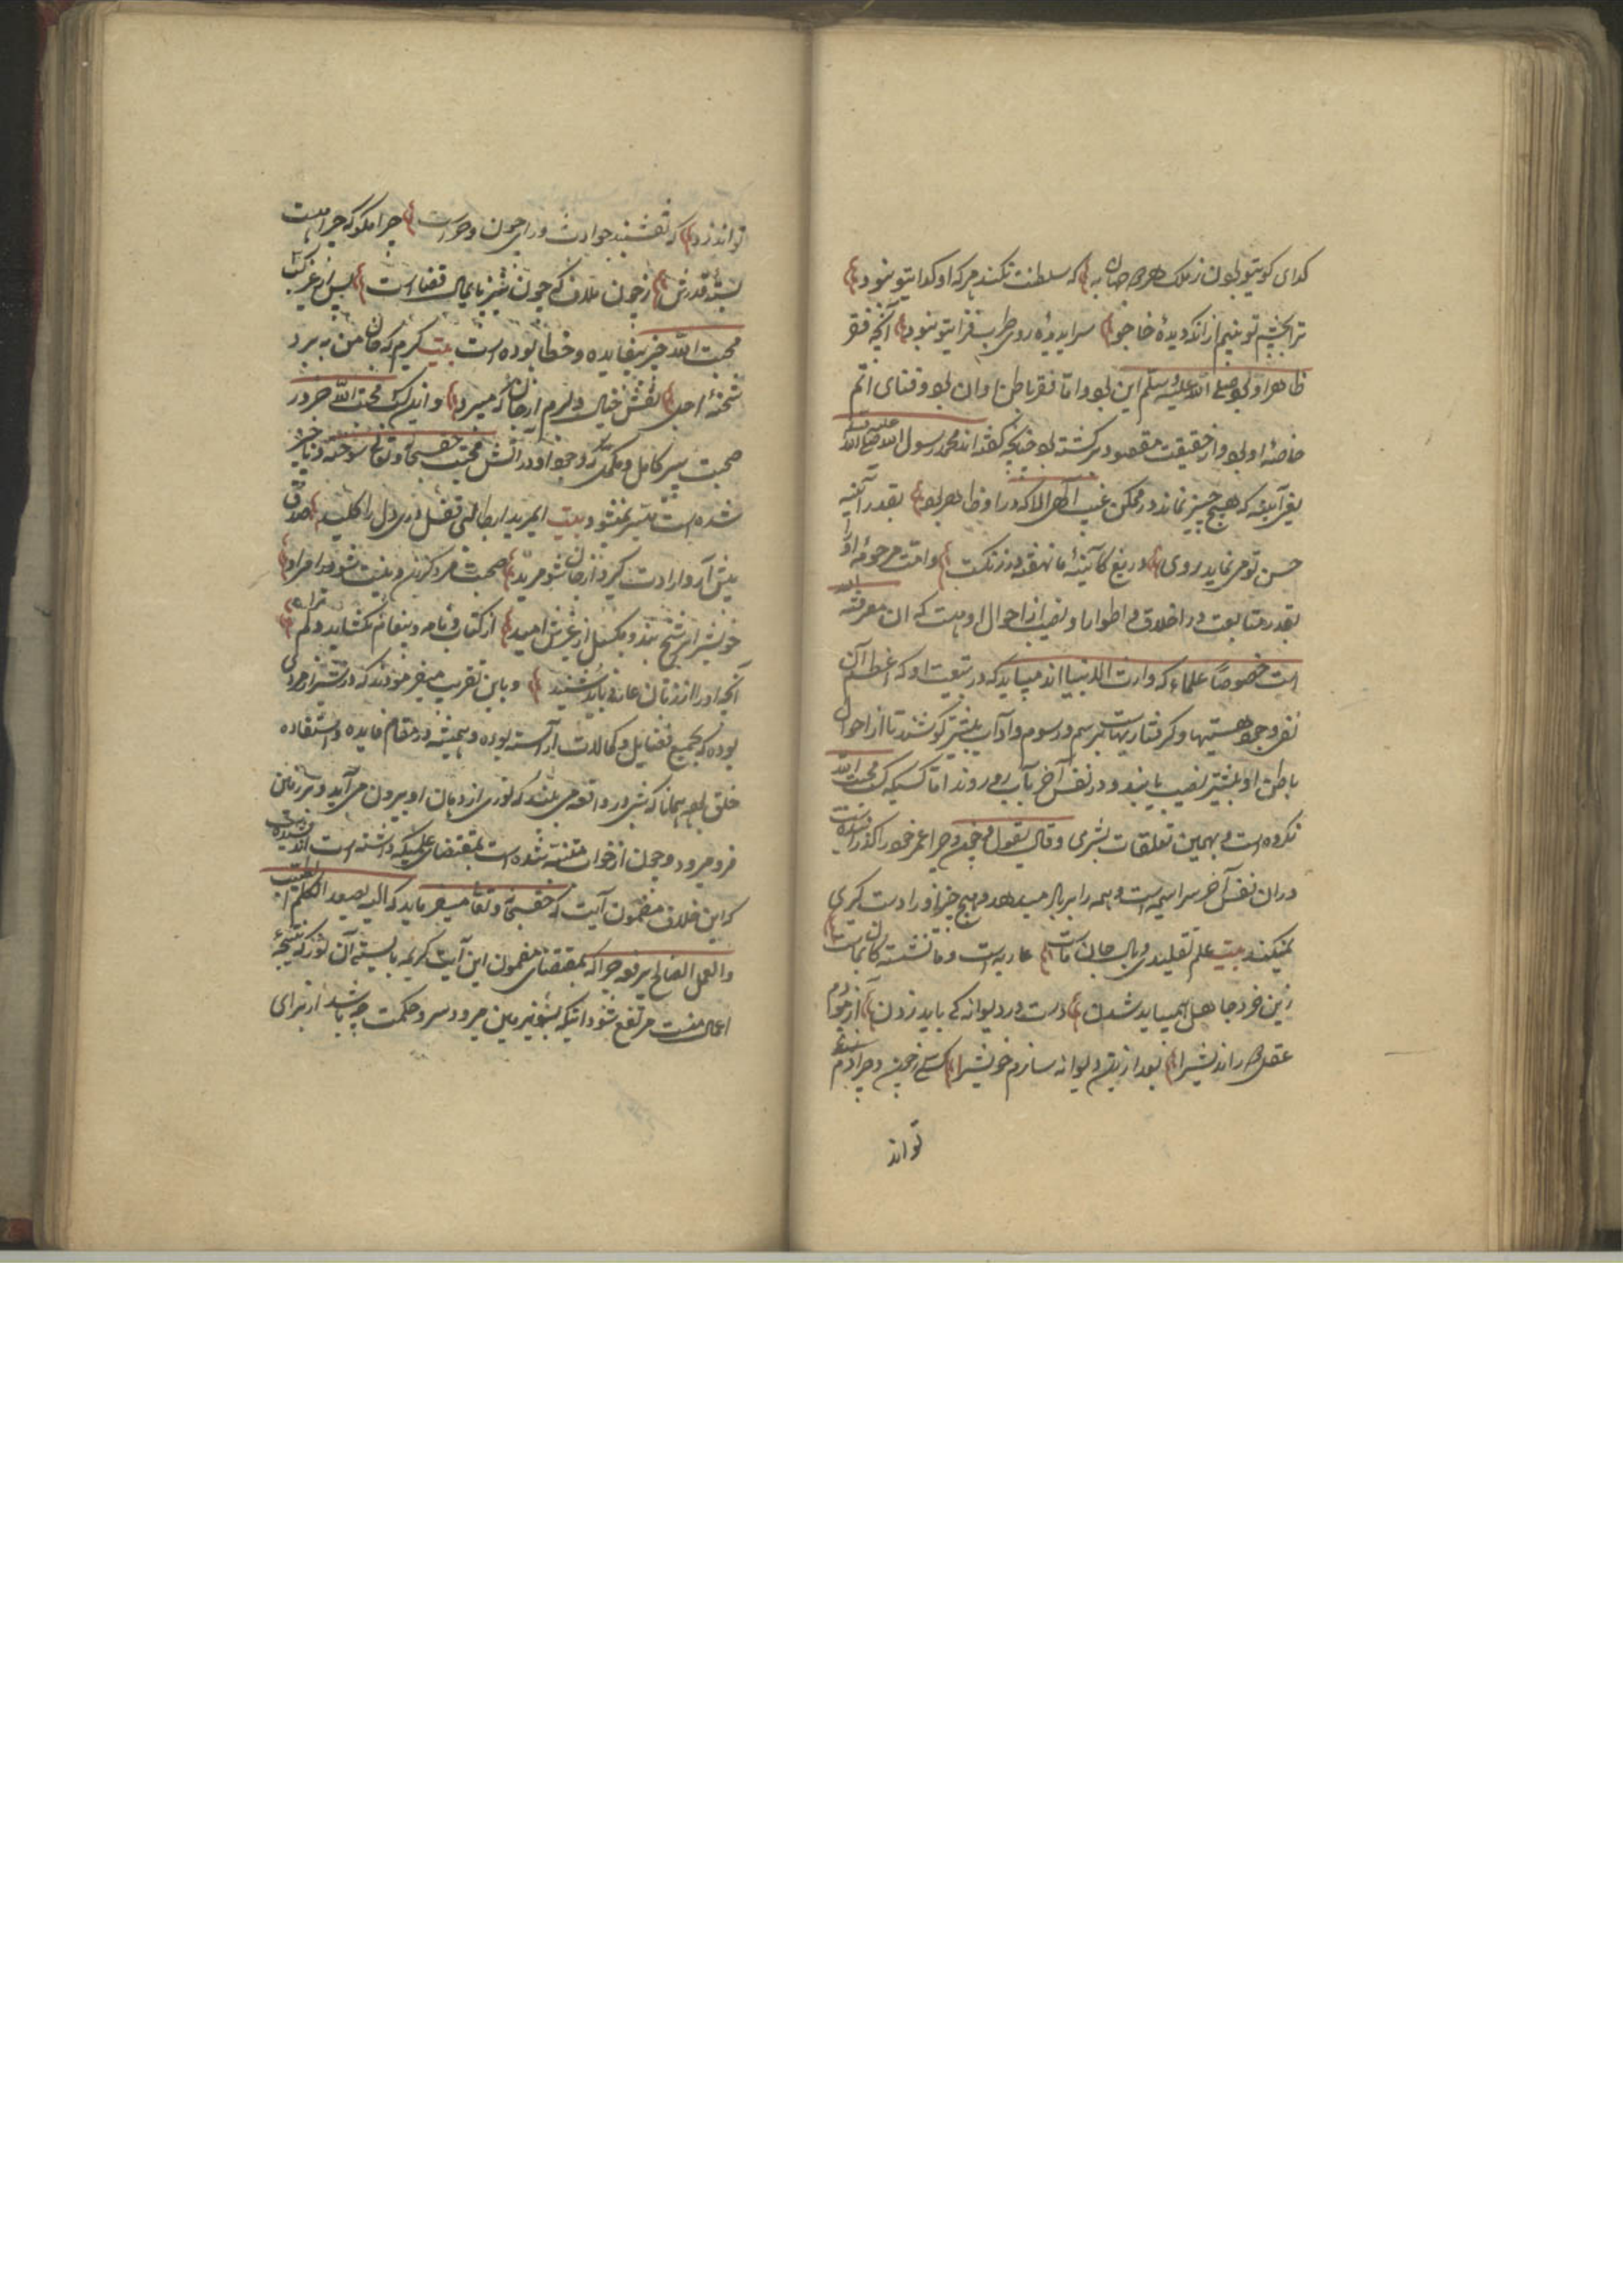 کدای کویتو بودن ز ملک هر دو جهان به که سلطنت نکند هر که او کدایتو نبود
ترا بچشم تو بینم از انکه دیدهٔ خاجو سراید روی طرب فزایتو نبود آنچه فقر
ظاهر او بود صلی الله علیه وسلم این بود و اما فقر باطن او آن بود و فنای اتم
خاصهٔ او بود و از حقیقت مقصود بر کشته بود چنانچه کفته اند محمد رسول الله صلی الله
بغیر آینه که هیچ چیز نماند در ممکن غیب الهی الا که در او ظاهر بود بقدر آینه
حسن تو می نماید روی دریغ کاینهٔ ما نهفته در زنکست و امت مرحومهٔ او را
بقدر متابعت در اخلاق و اطوار او نصیب از احوال او هست که ان معرفة الله
است خصوصاً علماء که وارث الانبیا اند میباید که در تبعیت او که اعظم آن
نفی وجود هستیها و کرفتاریهاست برسم و رسوم و آداب بیشتر کوشند تا از احوال
باطن او بیشتر نصیب یابند و در نفس آخر بآب رو روند اما کسیکه کسب محبت الله
نکرده است و بهمین تعلقات بشری و قال یقول و چون و چرا عمر خود را کذرانیده است
در ان نفس آخر سراسیمه است و همه را بر باد میدهد و هیچ چیز او را دست کیری
نمیکند بیت علم تقلیدی وبال جان ماست عاریه است و ما نشسته کان ماست
زین خرد جاهل همیباید شدن دست در دیوانه کی باید زدن آزمودم
عقل دور اندیش را بعد ازین دیوانه سازم خویش را کسی ز چون و چرا دم
تواند
تواند زد که نقشبند حوادث ورای چون و چراست چرا مکو که چرا دست
بستهٔ قدرش ز چون ملاف که چون نیز پایمال قضا است پس از غیر کسب
محبت الله خیر بیفایده و خطا بوده است بیت کیرم که جان من به برد
شحنهٔ اجل نقش خیال دلبرم از جان که میبرد و این کسب محبت الله جز در
صحبت پیر کامل و مکمل که وجود او در آتش محبت حق سبحانه و تعالی سوخته و ناچیز
شده است میسر نمیشود بیت ایمرید ار طالبی قفل در دل را کلید صدق
پیش آر و ارادت کیر و از جان شو مرید صحبت مردی کزین و نیست شو در امر او
خویش را بر شیخ بند و بکسل از غیرش امید از کتاب و نامه و پیغام نکشاید دلم
آنچه او را از زبان عارفان باید شنید و باین تقریب میفرمودند که در شیراز مردی
بوده که بجمیع فضایل و کمالات آراسته بوده و همیشه در مقام فایده و استفاده
خلق بوده همانا که شبی در واقعه می بیند که نوری از دهان او بیرون می آید و بر زمین
فرو میرود و چون از خواب متنبه شده است بمقتضای علمیکه داشته است اندیشیده است
که این خلاف مضمون آیت است حق سبحانه و تعالی میفرماید که الیه یصعد الکلم الطیب
والعمل الصالح یرفعه چرا که بمقتضای مضمون این آیت کریمه بایستی آن نور که نتیجهٔ
اعمال منست مرتفع شود اینکه بشیب زمین میرود سر و حکمت چه باشد از برای